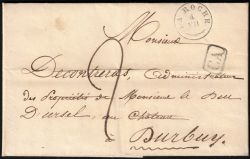 LA ROCHE
4
VII
Monsieur
CA
2
Decontreras, Administrateur
des Propriétés de Monsieur le Duc
D'ursel, au Château
Durbuy.